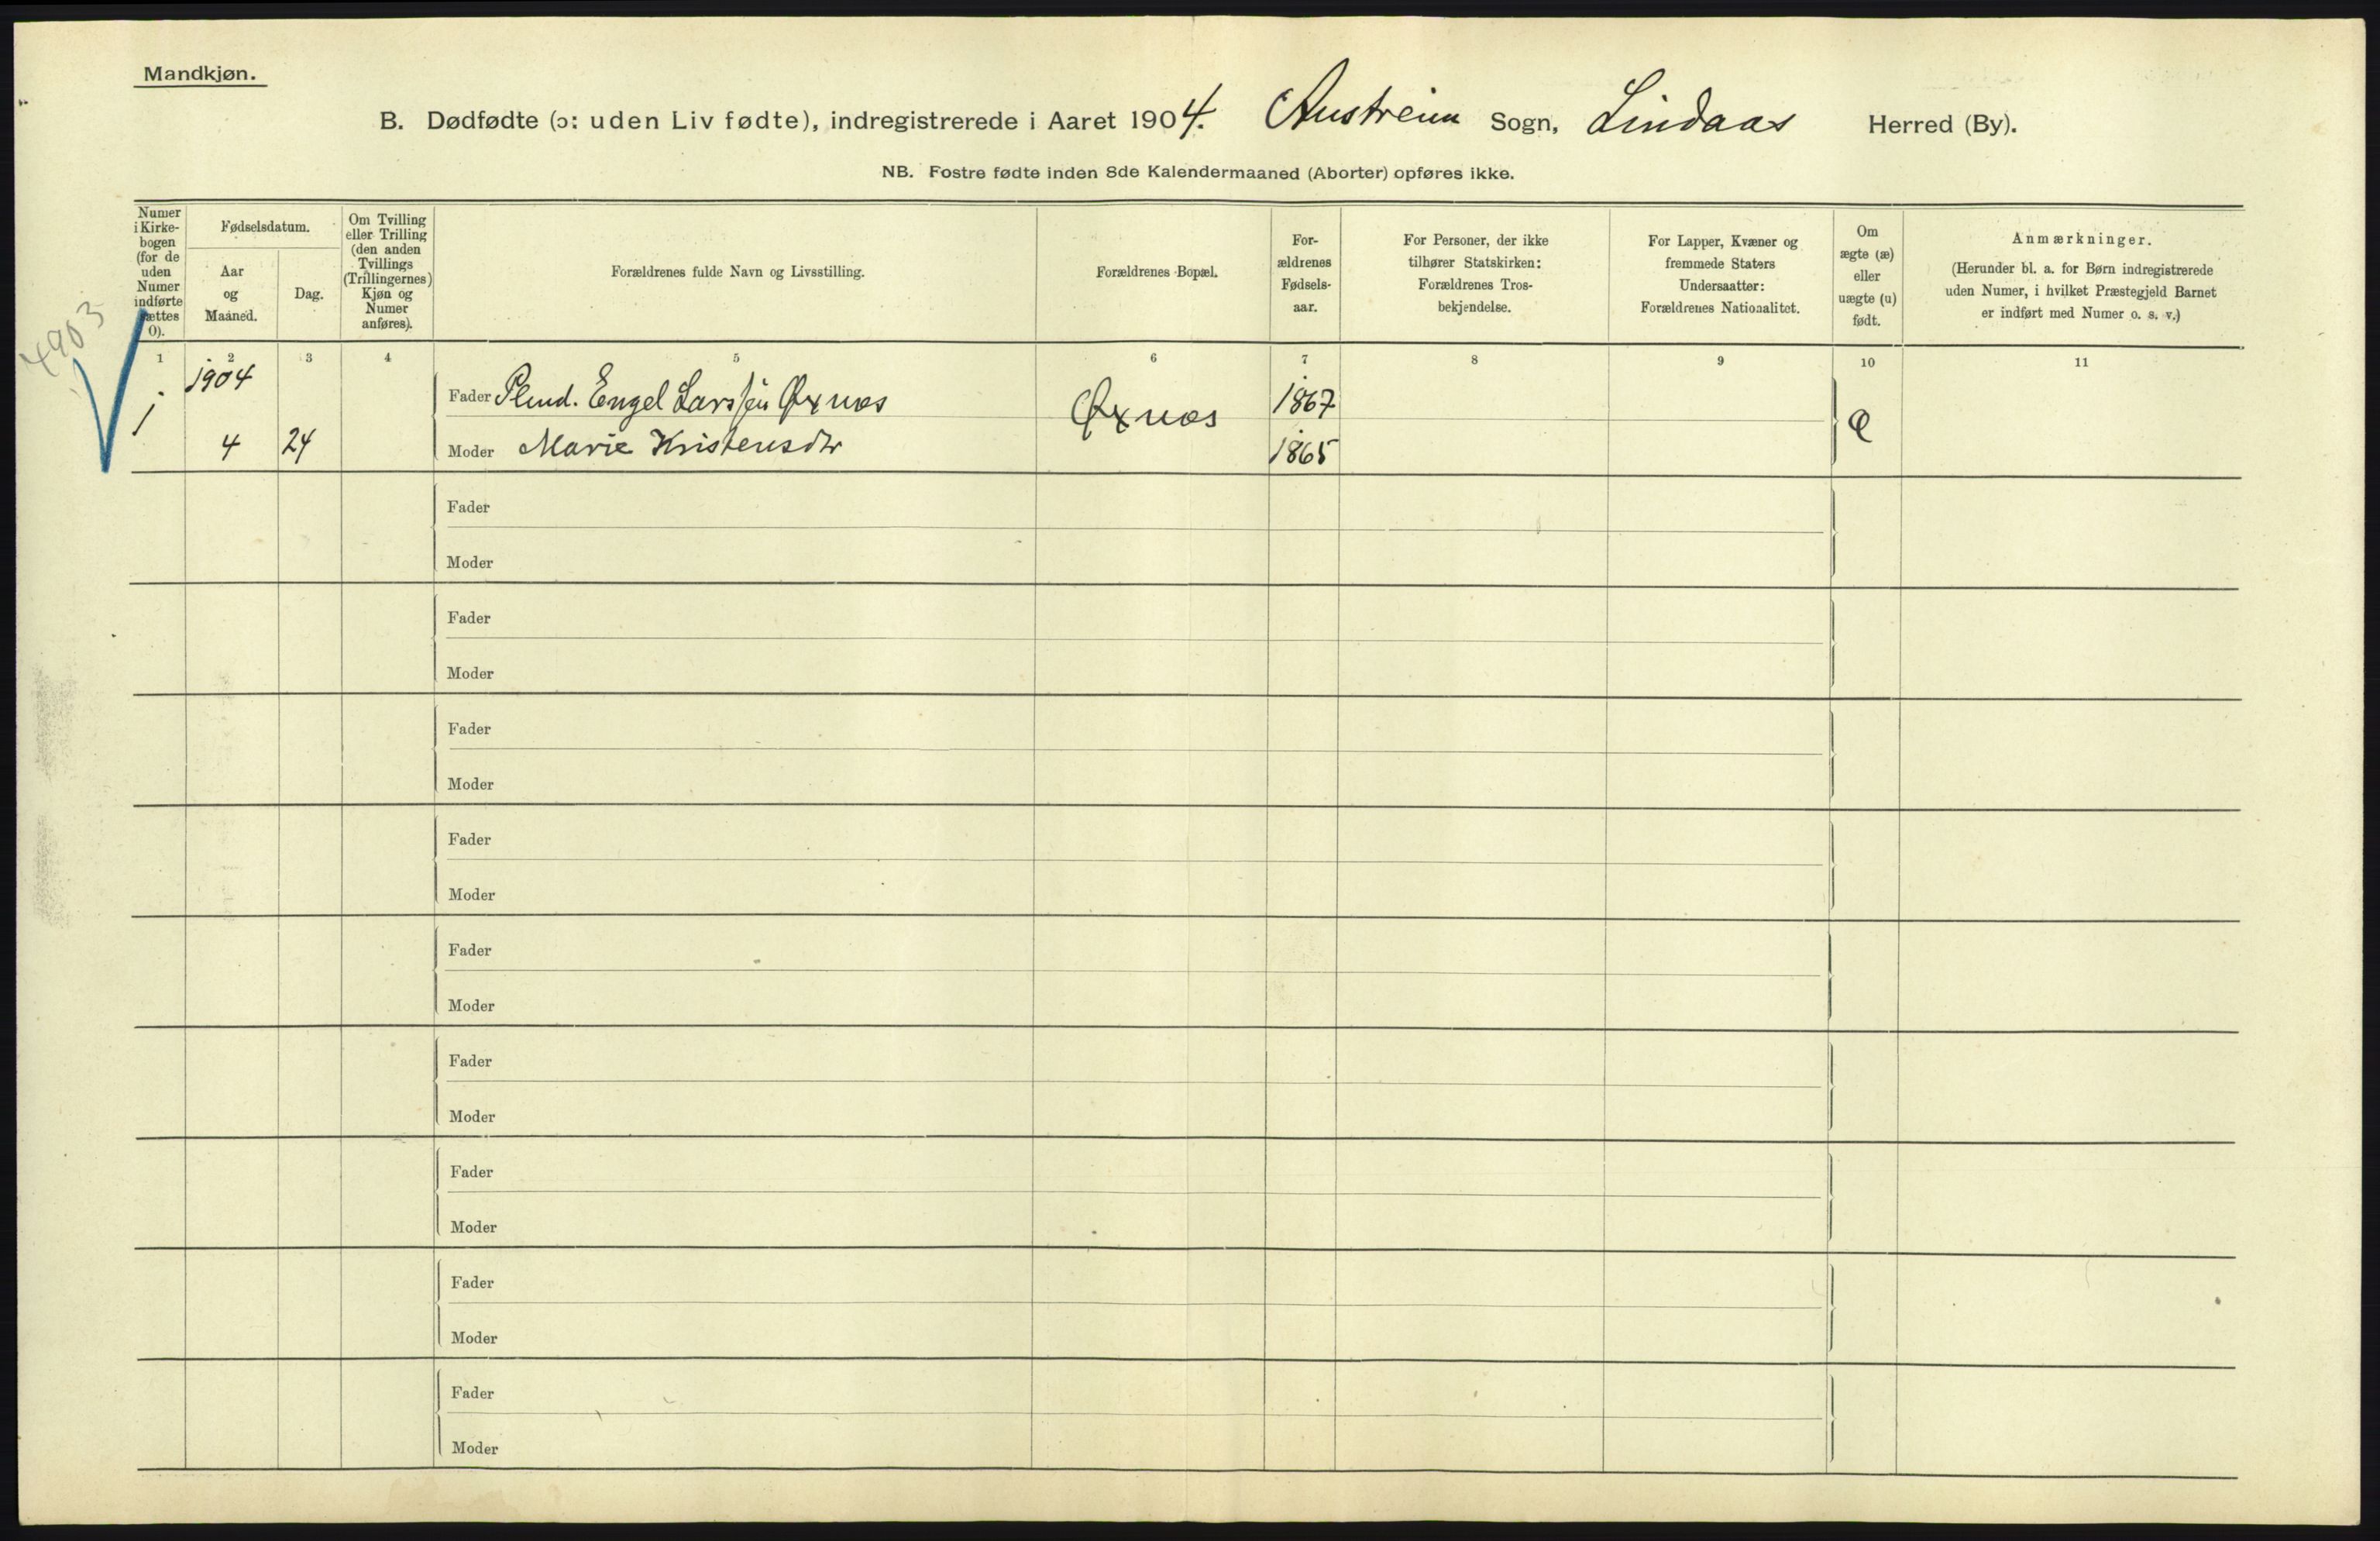 Mandkjøn.
B. Dødfødte (ɔ: uden Liv fødte), indregistrerede i Aaret 1904. Austreim Sogn, Lindaas Herred (By).
NB. Fostre fødte inden 8de Kalendermaaned (Aborter) opføres ikke.
Numer
i Kirke-
bogen
(for de
uden
Numer
indførte
sættes
0).
Fødselsdatum.
Aar
og
Maaned.
Dag.
Om Tvilling
eller Trilling
(den anden
Tvillings
(Trillingernes)
Kjøn og
Numer
anføres).
Forældrenes fulde Navn og Livsstilling.
Forældrenes Bopæl.
For-
ældrenes
Fødsels-
aar.
For Personer, der ikke
tilhører Statskirken:
Forældrenes Tros-
bekjendelse.
For Lapper, Kvæner og
fremmede Staters
Undersaatter:
Forældrenes Nationalitet.
Om
ægte (æ)
eller
uægte (u)
født.
Anmærkninger.
(Herunder bl. a. for Børn indregistrerede
uden Numer, i hvilket Præstegjeld Barnet
er indført med Numer o. s. v.)
1 2 3 4 5 6 7 8 9 10 11
4903
1904
1
Fader Plmd. Engel Larssen Øxnæs
Øxnæs
1867
4 24
Moder Marie Kristensdtr
1865
æ
Fader
Moder
Fader
Moder
Fader
Moder
Fader
Moder
Fader
Moder
Fader
Moder
Fader
Moder
Fader
Moder
Fader
Moder